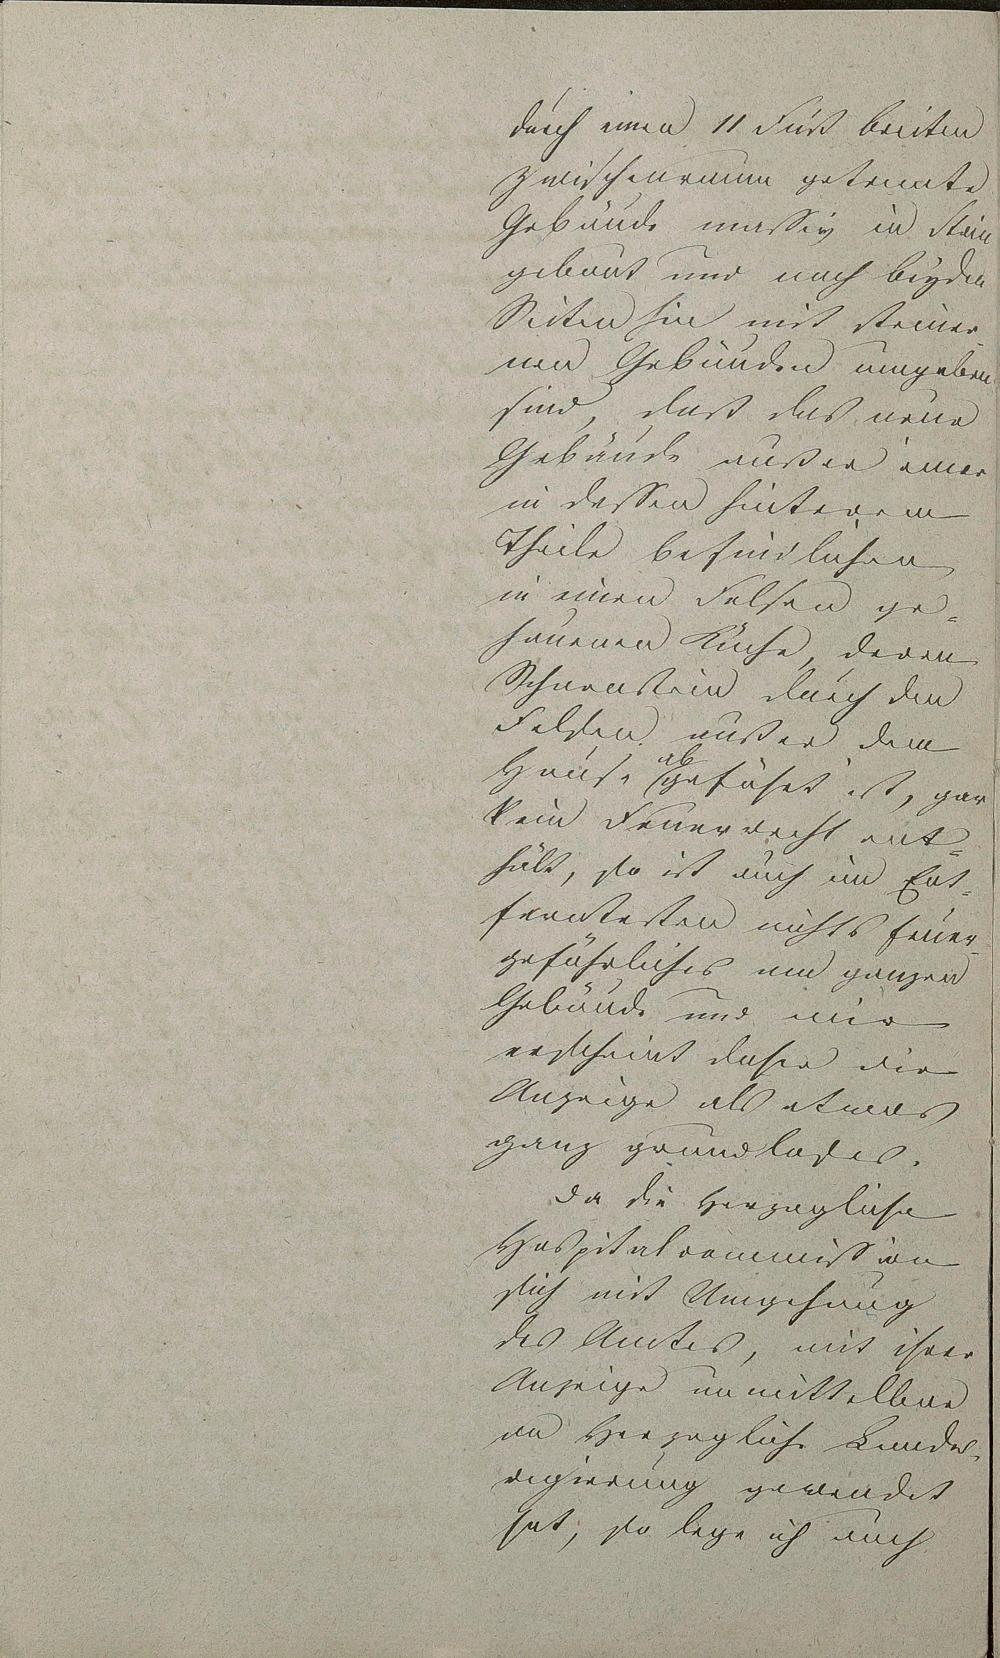 durch einen 11 Fuß breiten
Zwischenraum getrennte
Gebäude massiv in Stein
gebaut und nach beyden
Seiten hin mit steiner-
nen Gebäuden umgeben
sind, daß das neue
Gebäude außer einer
in dessen hinterem
Theile befindlichen
in einen Felsen ge-
hauenen Küche, deren
Schornstein durch den
Felsen außer dem
Hause abgeführt ist, gar
kein Feuerrecht ent-
hält, so ist auch im Ent-
ferntesten nichts feuer-
gefährliches am ganzen
Gebäude und mir
erscheint daher die
Anzeige als etwas
ganz grundloses.
Da die Herzogliche
Hospitalcommission
sich mit Umgehung
des Amtes, mit ihrer
Anzeige unmittelbar
an Herzogliche Landes-
regierung gewendet
hat, so lege ich auch